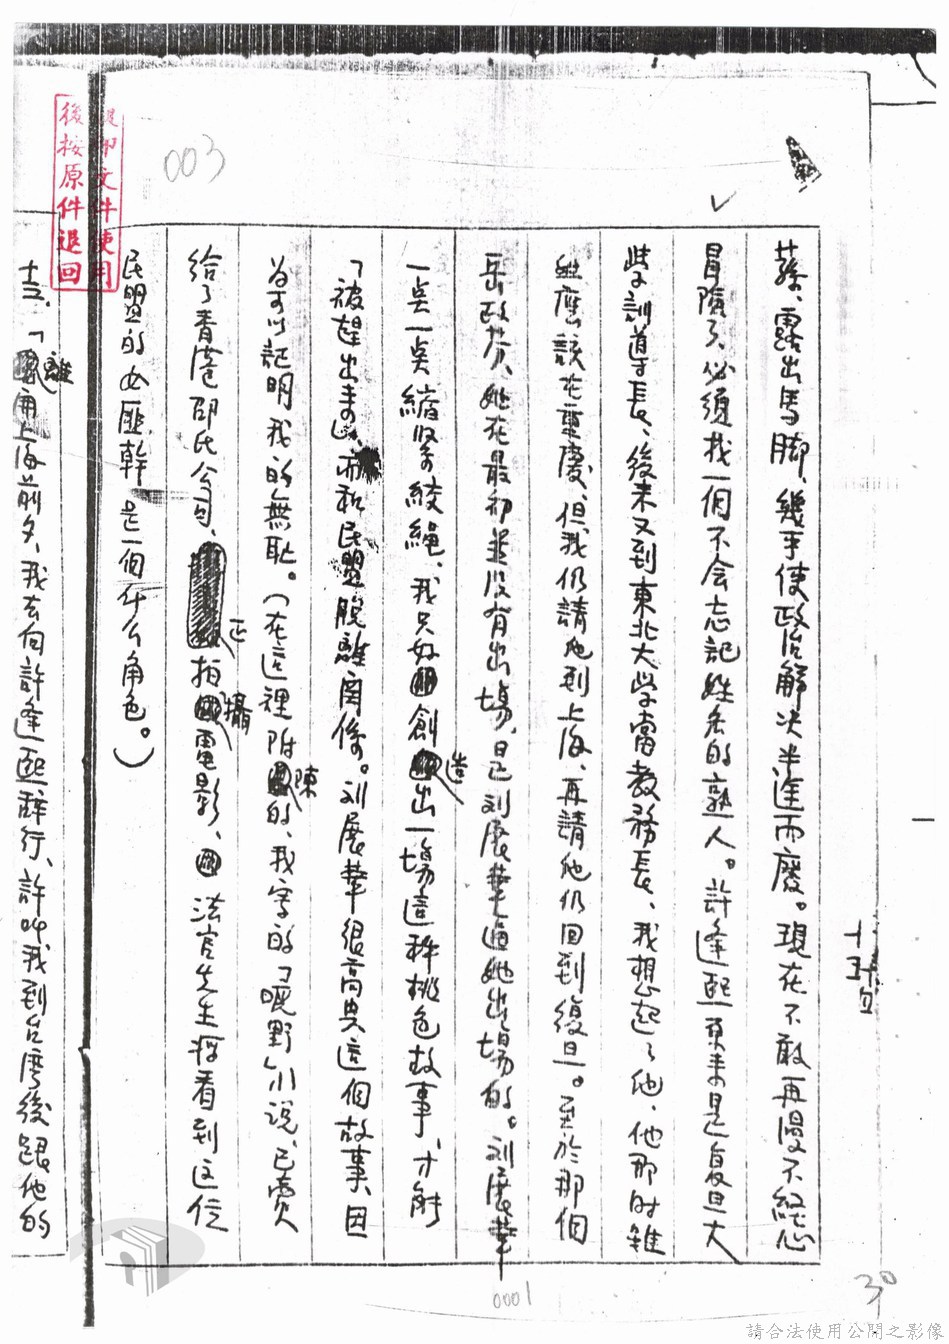 003
複印文件使用
後按原件退回
蔡、露出馬脚、幾乎使政治解决半途而廢。現在不敢再漫不経心
冒險了、必須找一個不会忘記姓名的熟人。許逢熙原来是復旦大
學訓導長、後来又到東北大学當教務長、我想起了他、他那时雖
然應該在重慶、但我仍請他到上海、再請他仍回到復旦。至於那個
岳政芬、她在最初並没有出場、是刘展華逼她出場的。刘展華
一点一点縮緊絞繩、我只好創造出一場這种桃色故事、才能
「被趕出来」、而和民盟脫離関係。刘展華很高興這個故事、因
為可以証明我的無耻。（在這裡附陳的、我写的「嗯野」小説、已賣
給了香港邵氏公司、正拍攝電影、法官先生将看到这位
民盟的女匪幹是一個什么角色。）
十三、「離開上海前夕、我去向許逢熙辞行、許叫我到台湾後跟他的
0001
30
請合法使用公開之影像